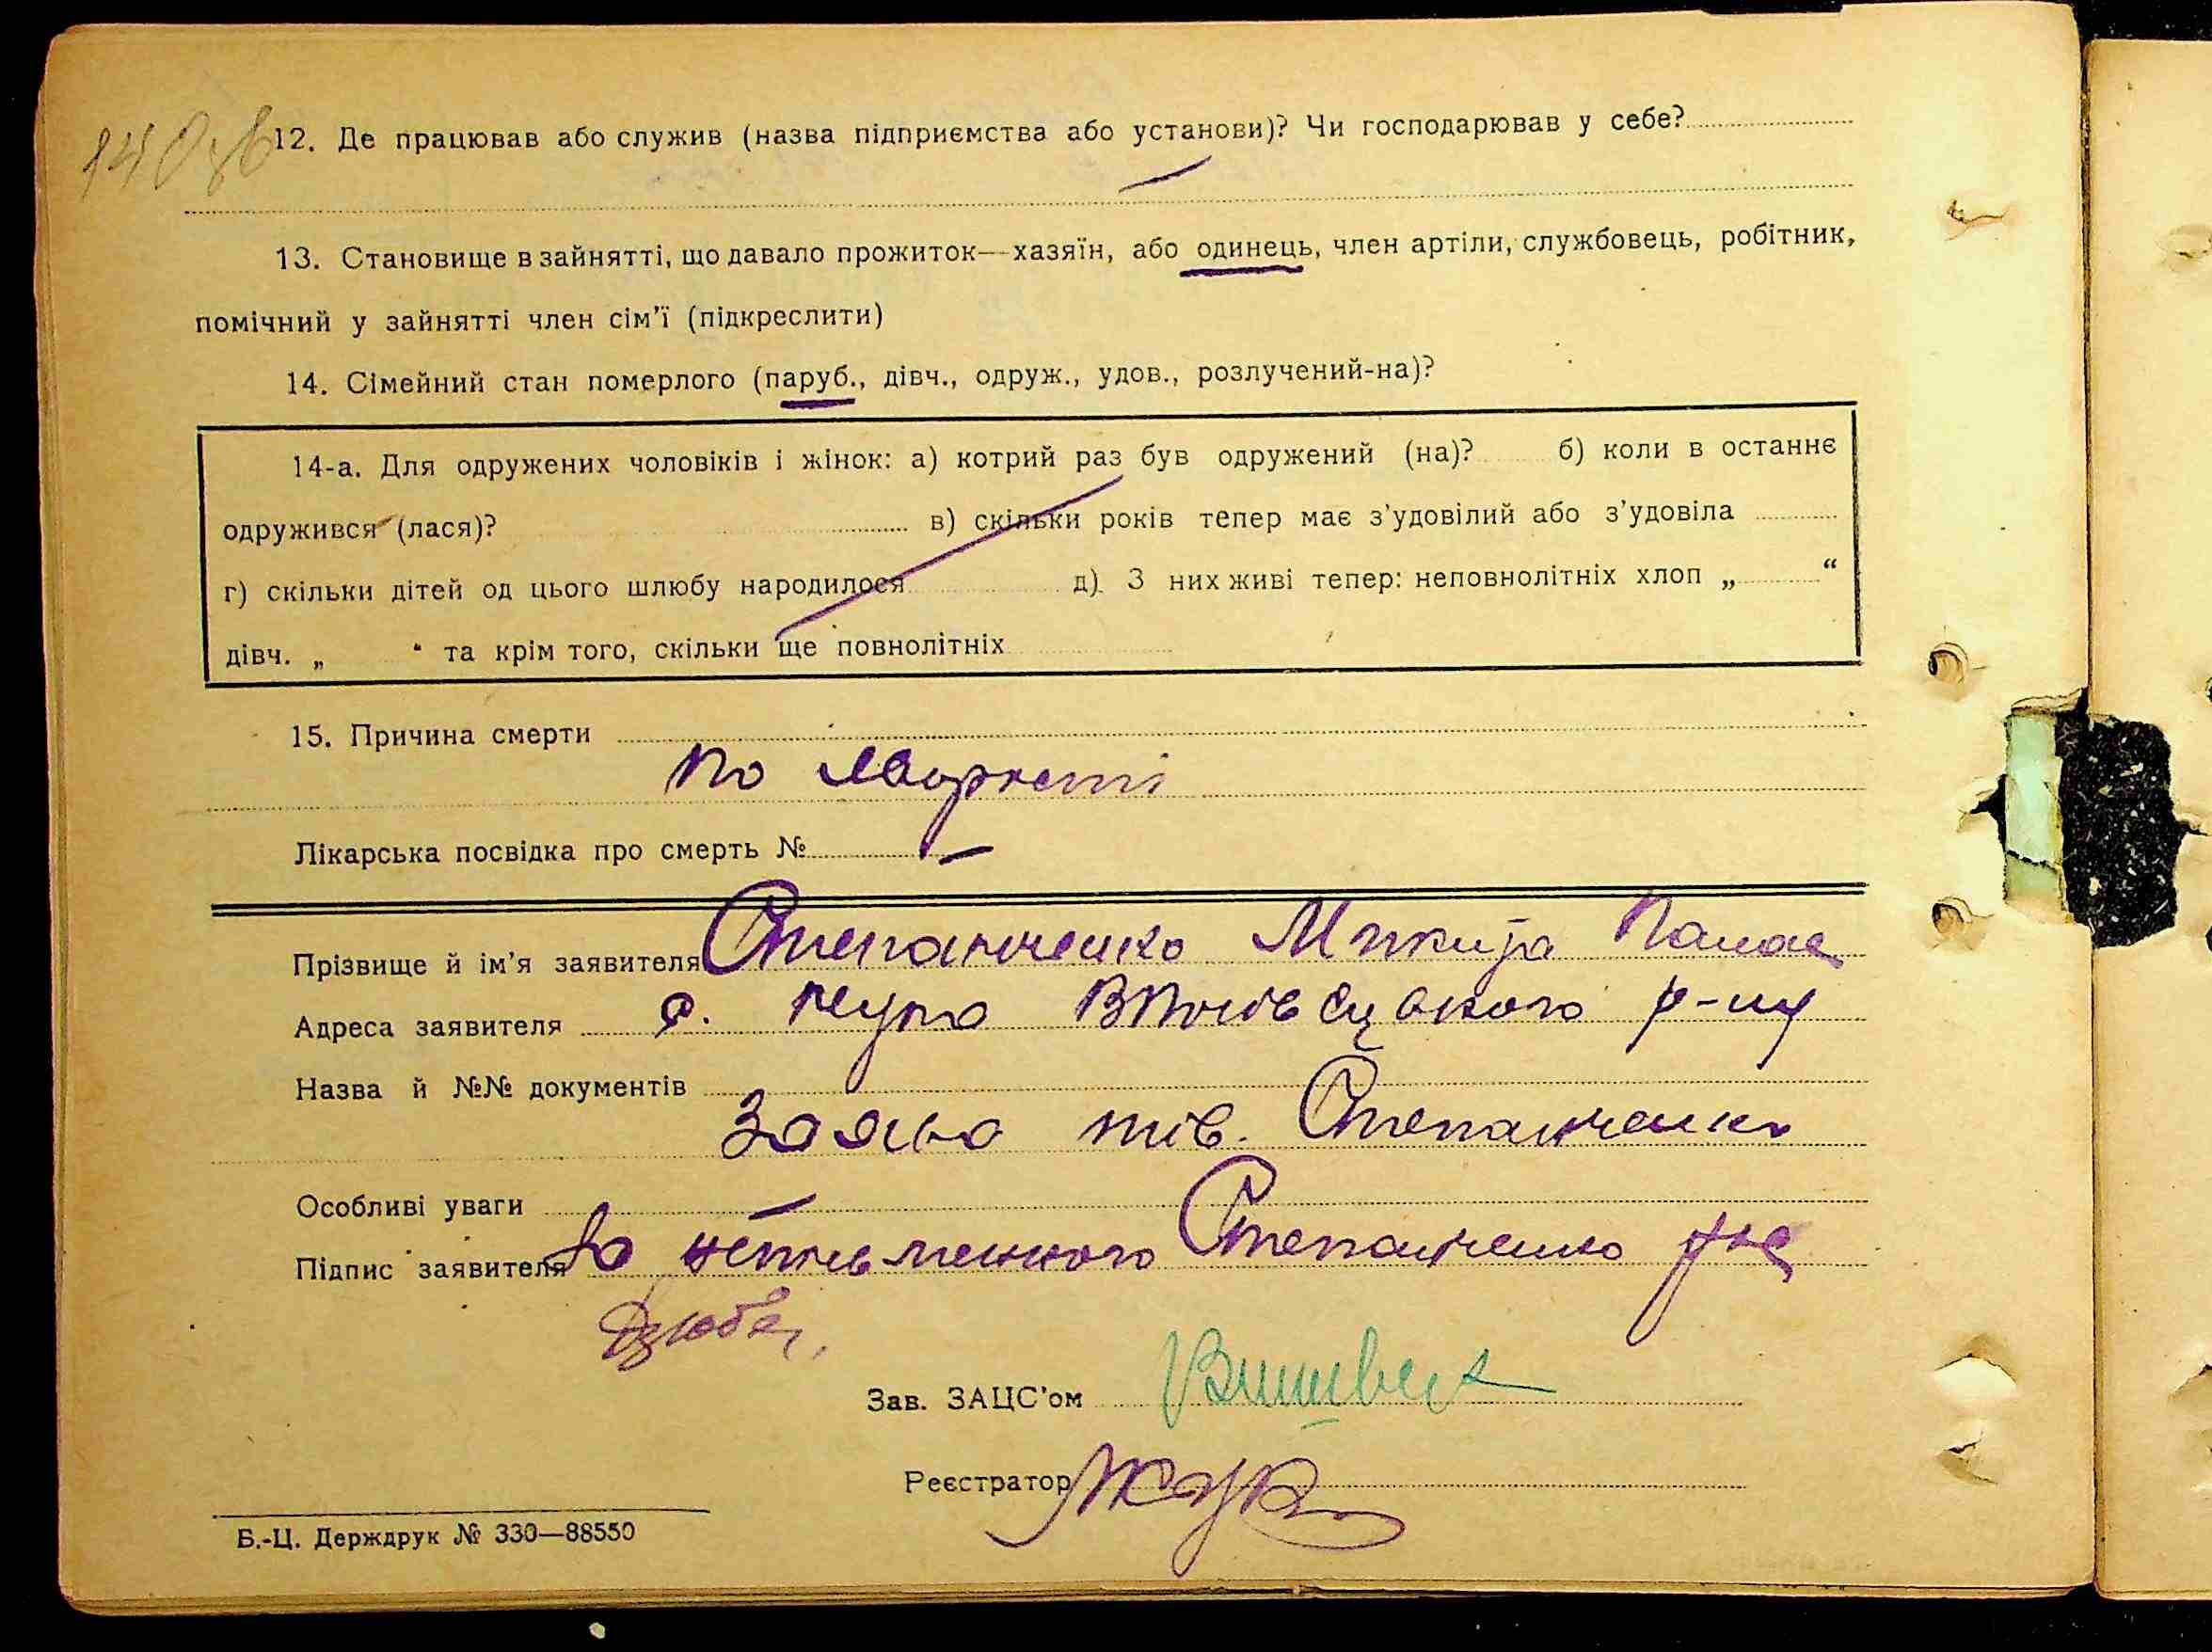 140зв
12. Де працював або служив (назва підприємства або установи)? Чи господарював у себе?
13. Становище в зайнятті, що давало прожиток—хазяїн, або одинець, член артіли, службовець, робітник,
помічний у зайнятті член сім’ї (підкреслити)
14. Сімейний стан померлого (паруб., дівч., одруж., удов., розлучений-на)?
14-а. Для одружених чоловіків і жінок: а) котрий раз був одружений (на)? б) коли в останнє
одружився (лася)? в) скільки років тепер має з’удовілий або з’удовіла
г) скільки дітей од цього шлюбу народилося д) З них живі тепер: неповнолітніх хлоп „ “
дівч. „ “ та крім того, скільки ще повнолітніх
15. Причина смерти
по
Лікарська посвідка про смерть № —
Прізвище й ім’я заявителя Степанченко Микита Панас
Адреса заявителя с. р-ну
Назва й №№ документів
Заява тов. Степанченко
Особливі уваги —
Підпис заявителя За неписьменного Степанченко
Дзюба
Зав. ЗАЦС’ом
Реєстратор Жук
Б.-Ц. Держдрук № 330—88550